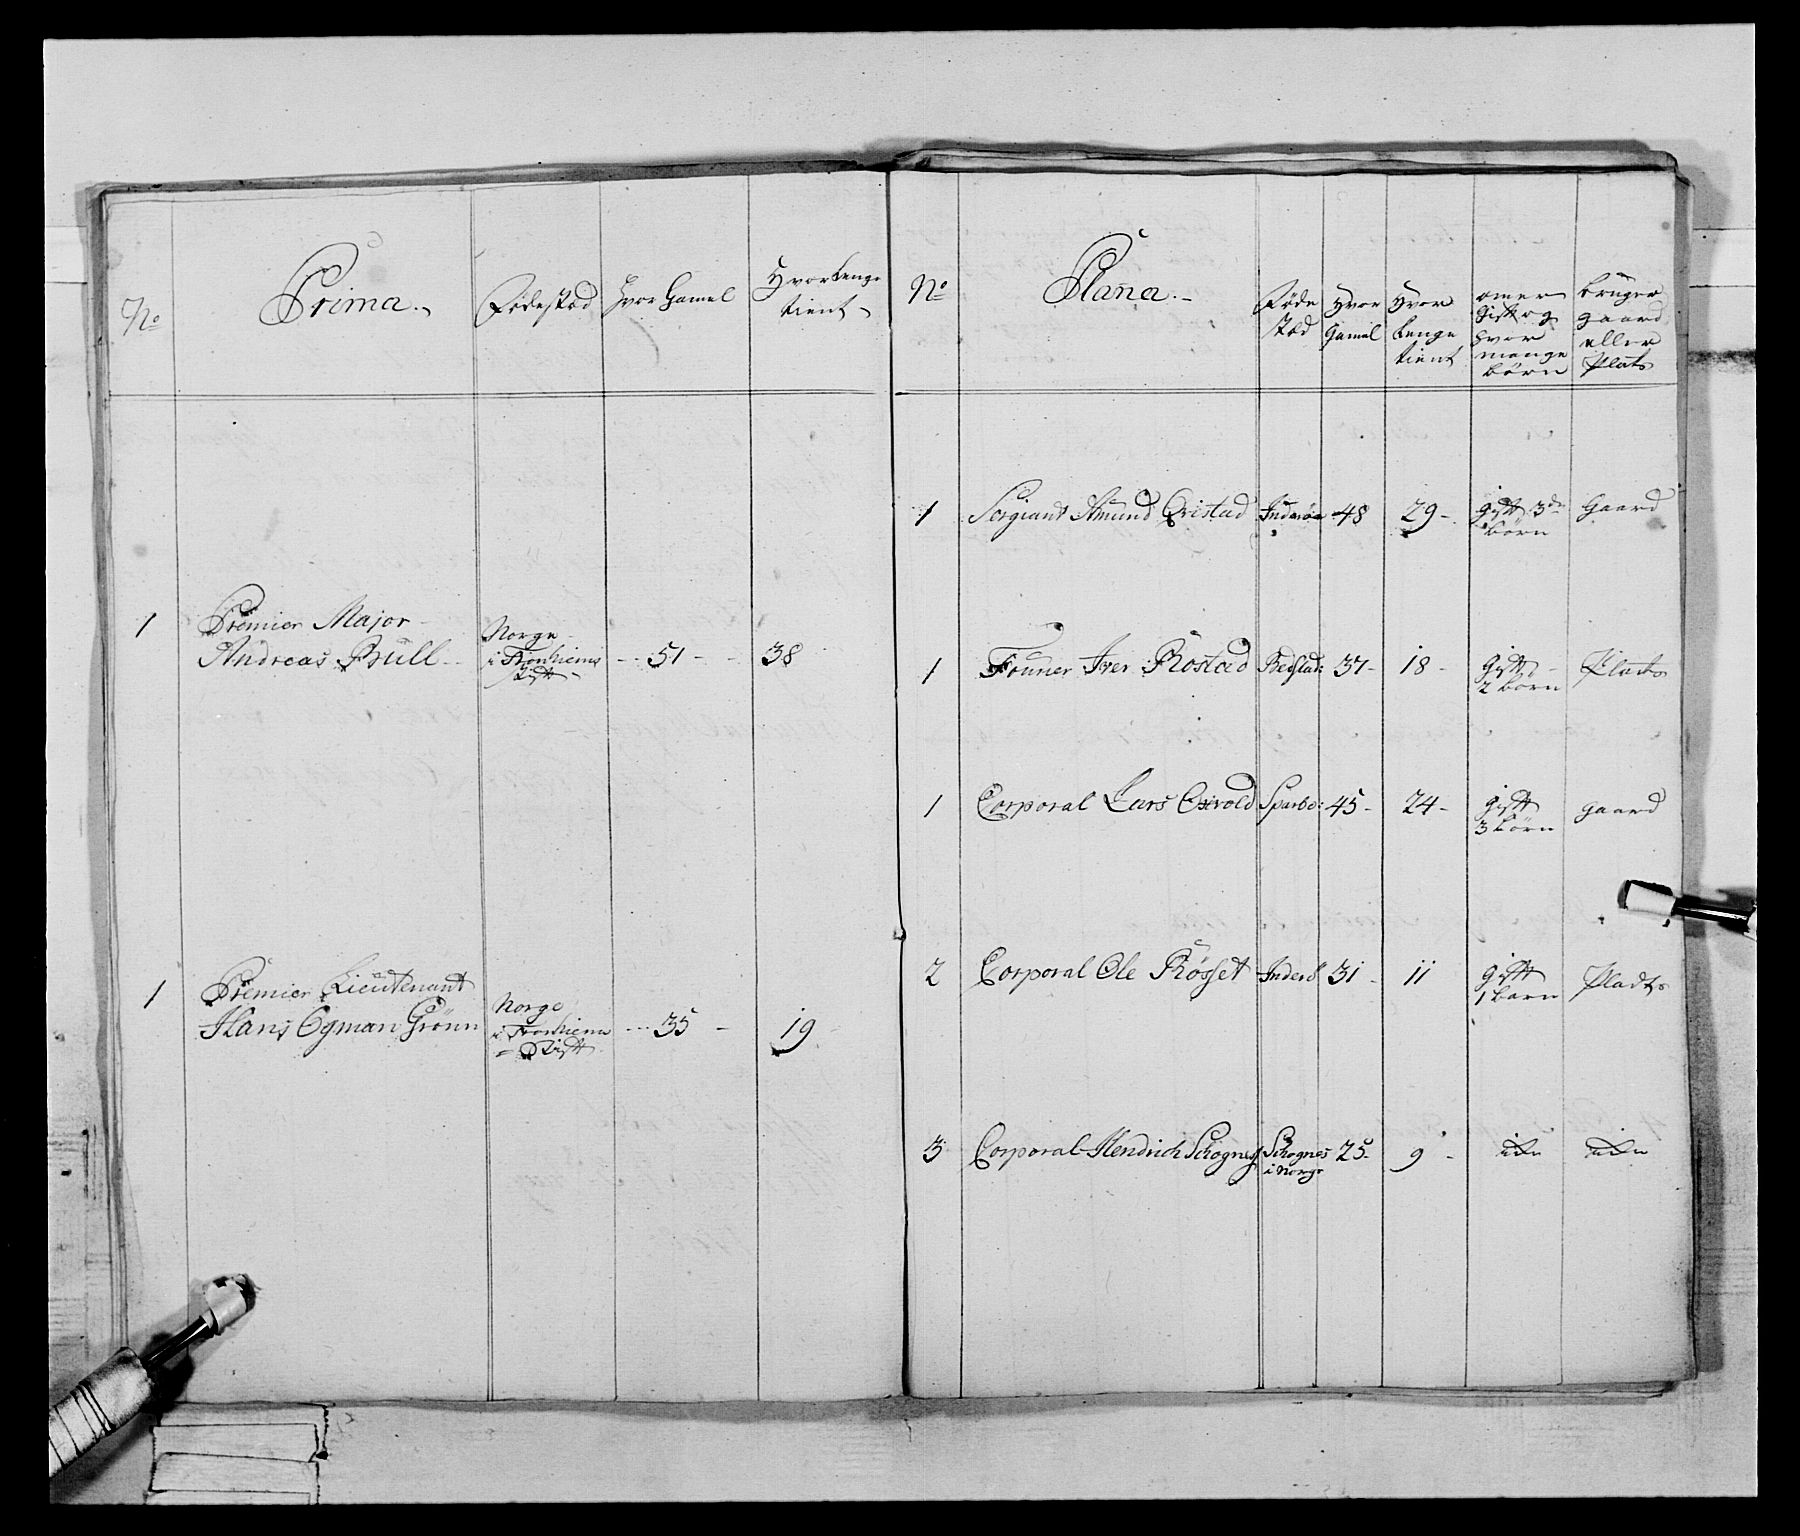 No
Prima.
Födestæd
hvor Gamel
Hvor Lenge
tient
1
Premier Major
Andreas Bull
Norge
i Tronhiems
Stift
51
38
1
Premier Lieutenant
Hans Ogman Grönn
Norge
i Tronhiems
Stift
35
19
No
Plana.
Föde
stæd
Hvor
Gamel
Hvor
Lenge
tient
om er
Gift og
hvor
mange
börn
bruger
gaard
eller
Plats
1
Sergiant Amund Qvistad
Inderöe
48
29
gift 3de
börn
Gaard
1
Fourier Iver Rostad
Begstad:
37
18
Gift
2 börn
Plads
1
Corporal Lars Oxvold
Sparbo:
45
24
gift
3 börn
gaard
2
Corporal Ole Rösset
Inderö
31
11
Gift
1 barn
Pladts
3
Corporal Hendrich Schognes
Schognes
i Norge
25
9